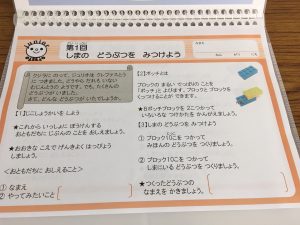 第1回
しまの どうぶつを みつけよう
なまえ
クジラに のって、ジュリオは クレファスとう
に つきました。どうやら だれも いない
むじんとうの ようです。でも、たくさんの
どうぶつが いました。
さて、どんな どうぶつが いたでしょうか。
【1】じこしょうかいを しよう
★これから いっしょに ぼうけんする
おともだちに じぶんのことを おしえましょう。
★おおきな こえで げんきよく はっぴょう
しましょう。
<おともだちに おしえること>
① なまえ
② やってみたいこと
【2】ポッチとは
ブロックの まるい でっぱりの ことを
「ポッチ」と よびます。ブロックと ブロックを
くっつけることが できます。
★8ポッチブロックを 2こつかって
いろいろな つけかたを かんがえましょう。
【3】しまの どうぶつを みつけよう
① ブロック10こを つかって
みほんの どうぶつを つくりましょう。
② ブロック10こを つかって
しまにいる どうぶつを つくりましょう。
★つくったどうぶつの
なまえを かきましょう。